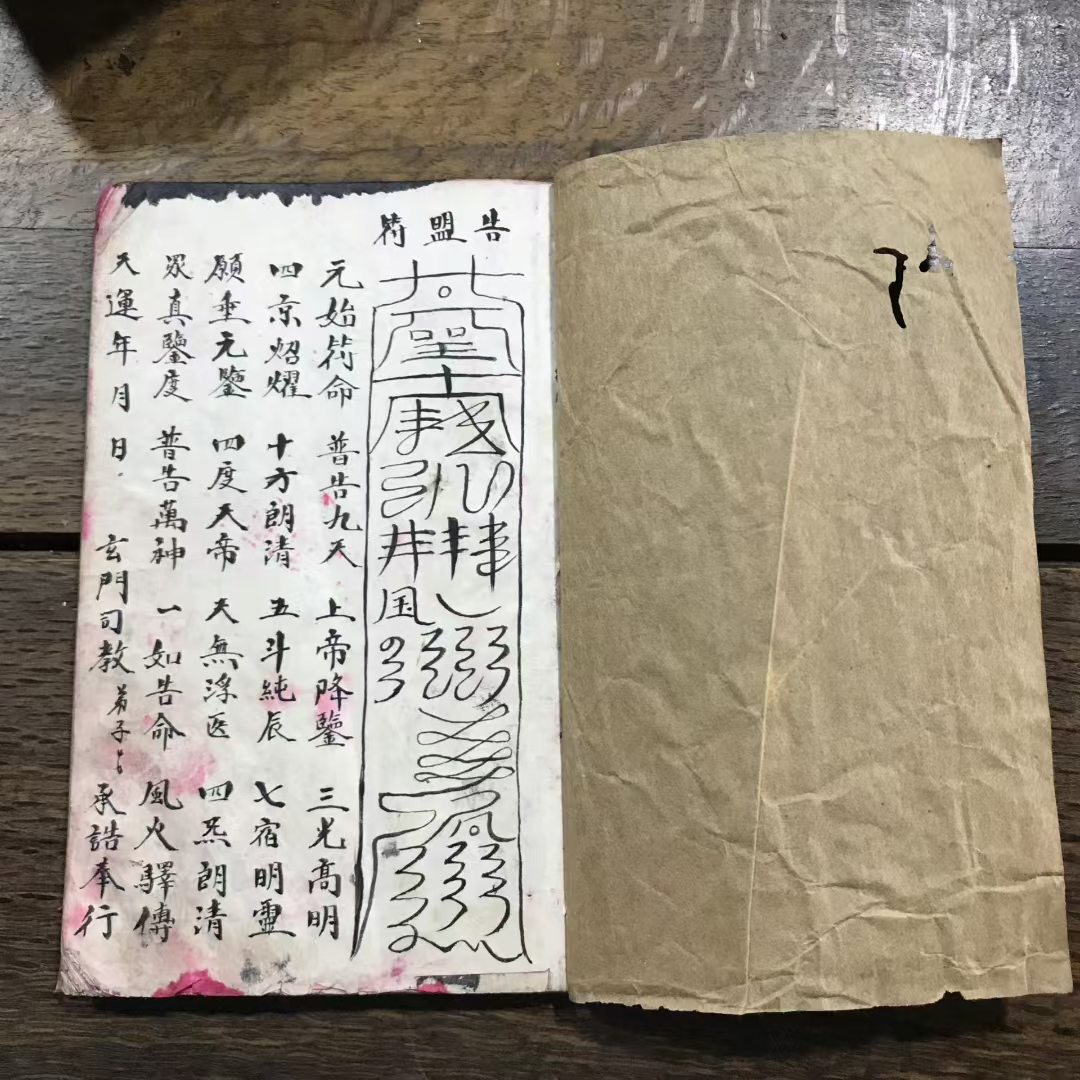 告盟符
元始符命 普告九天 上帝降鑒 三光高明
四京炤耀 十方朗清 五斗純辰 七宿明靈
願垂元鑒 四度天帝 天無浮医 四炁朗清
眾真鑒度 普告萬神 一如告命 風火驛傳
天運年月日 玄門司教弟子 承誥奉行